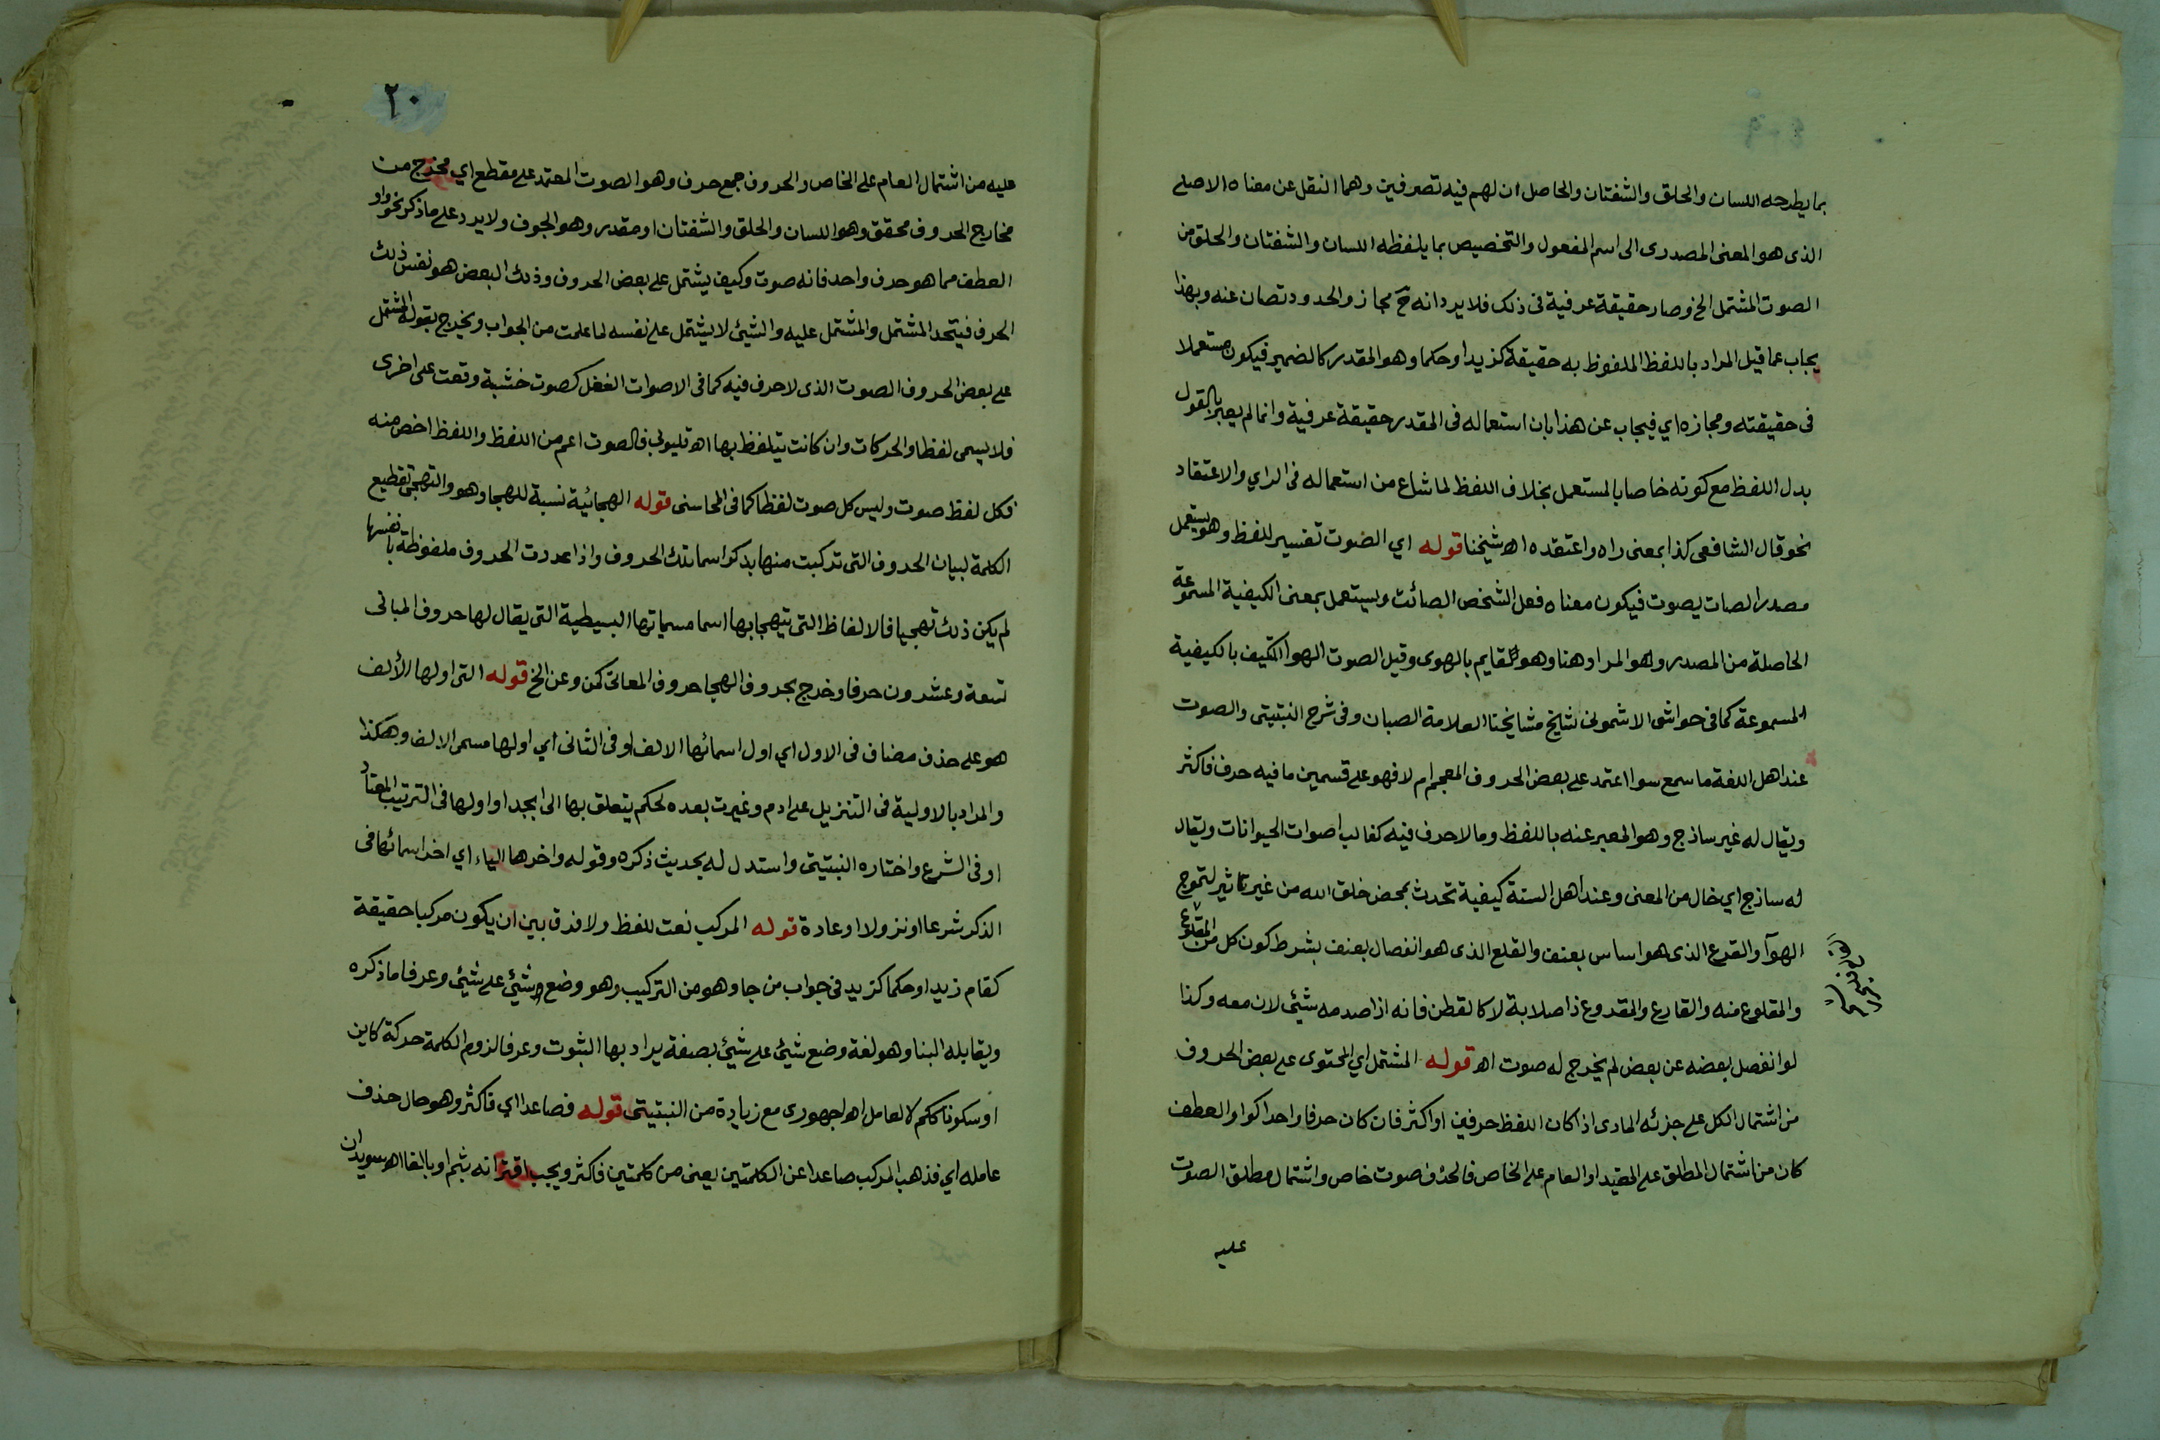 بما يطرحه اللسان والحلق والشفتان والحاصل ان لهم فيه تصرفين وهما النقل عن معناه الاصلي
الذى هو المعنى المصدرى الى اسم المفعول والتخصيص بما يلفظه اللسان والشفتان والحلق من
الصوت المشتمل الخ وصار حقيقة عرفية فى ذلك فلا يرد انه ح مجاز والحدود تصان عنه وبهذا
يجاب عما قيل المراد باللفظ الملفوظ به حقيقة كزيد او حكما وهو المقدر كالضمير فيكون مستعملا
فى حقيقته ومجازه اي فيجاب عن هذا بان استعماله فى المقدر حقيقة عرفية وانما لم يعبر بالقول
بدل اللفظ مع كونه خاصا بالمستعمل بخلاف اللفظ لما شاع من استعماله فى الراي والاعتقاد
نحو قال الشافعى كذا بمعنى راه واعتقده اه شيخنا قوله اي الصوت تفسير للفظ وهو يستعمل
مصدر الصات يصوت فيكون معناه فعل الشخص الصائت ويستعمل بمعنى الكيفية المسموعة
الحاصلة من المصدر وهو المراد هنا وهو قايم بالهوى وقيل الصوت الهوا المتكيف بالكيفية
المسموعة كما فى حواشى الاشمونى لشيخ مشايخنا العلامة الصبان وفى شرح النبتيتى والصوت
عند اهل اللغة ما سمع سوا اعتمد على بعض الحروف المعجم ام لا فهو على قسمين ما فيه حرف فاكثر
ويقال له غير ساذج وهو المعبر عنه باللفظ وما لا حرف فيه كغالب اصوات الحيوانات ويقال
له ساذج اي خال من المعنى وعند اهل السنة كيفية تحدث بمحض خلق الله من غير تاثير لتموج
الهوآ والقرع الذى هو اساس بعنف والقلع الذى هو انفصال بعنف بشرط كون كل من المقلوع
والمقلوع منه والقارع والمقروع ذا صلابة لا كالقطن فانه اذا صدمه شيئ لان معه وكذا
لو انفصل بعضه عن بعض لم يخرج له صوت اه قوله المشتمل اي المحتوى على بعض الحروف
من اشتمال الكل على جزئه المادى اذا كان اللفظ حرفين او اكثر فان كان حرفا واحدا كواو العطف
كان من اشتمال المطلق على المقيد او العام على الخاص فالحذف صوت خاص واشتمال مطلق الصوت
عليه
٢٠
عليه من اشتمال العام على الخاص والحروف جمع حرف وهو الصوت المعتمد على مقطع اي مخرج من
مخارج الحروف محقق وهو اللسان والحلق والشفتان او مقدر وهو الجوف ولا يرد على ما ذكر نحو واو
العطف مما هو حرف واحد فانه صوت وكيف يشتمل على بعض الحروف وذلك البعض هو نفس ذلك
الحرف فيتحد المشتمل والمشتمل عليه والشيئ لا يشتمل على نفسه لما علمت من الجواب ويخرج بقوله المشتمل
على بعض الحروف الصوت الذى لا حرف فيه كما فى الاصوات الغفل كصوت خشبة وقعت على اخرى
فلا يسمى لفظا والحركات وان كانت يتلفظ بها اه قليوبى فالصوت اعم من اللفظ واللفظ اخص منه
فكل لفظ صوت وليس كل صوت لفظا كما فى المحاسنى قوله الهجائية نسبة للهجا وهو والتهجى تقطيع
الكلمة لبيان الحروف التى تركبت منها بذكر اسما تلك الحروف واذا عددت الحروف ملفوظة بانفسها
لم يكن ذلك تهجيا فالالفاظ التى يتهجا بها اسما مسمياتها البسيطية التى يقال لها حروف المبانى
تسعة وعشرون حرفا وخرج بحروف الهجا حروف المعانى كمن وعن الخ قوله التى اولها الألف
هو على حذف مضاف فى الاول اي اول اسمائها الالف او فى الثانى اي اولها مسمى الالف وهكذا
والمراد بالاولية فى التنزيل على ادم وغيرت بعده لحكم يتعلق بها الى ابجد او اولها فى الترتيب المعتاد
او فى الشرع واختاره النبتيتى واستدل له بحديث ذكره وقوله واخرها الياء اي اخر اسمائها فى
الذكر شرعا او نزولا او عادة قوله المركب نعت للفظ ولا فرق بين ان يكون مركبا حقيقة
كقام زيد او حكما كزيد فى جواب من جا وهو من التركيب وهو وضع شيئ على شيئ وعرفا ما ذكره
ويقابله البنا وهو لغة وضع شيئ على شيئ بصفة يراد بها الثبوت وعرفا لزوم الكلمة حركة كاين
او سكونا ككم لا لعامل اه اجهورى مع زيادة من النبتيتى قوله فصاعدا اي فاكثر وهو حال حذف
عامله اي فذهب المركب صاعدا عن الكلمتين يعنى من كلمتين فاكثر ويجب اقترانه بثم او بالفا اه سويدان